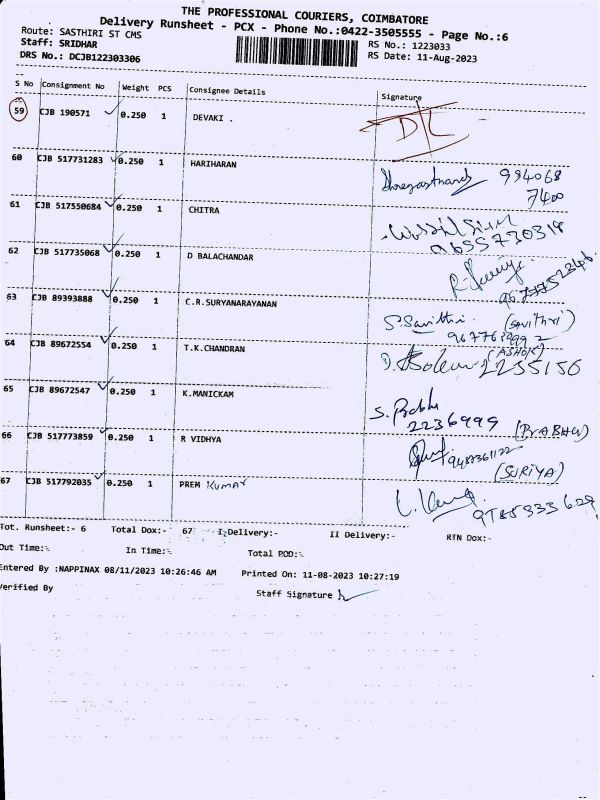 THE PROFESSIONAL COURIERS, COIMBATORE
Delivery Runsheet - PCX - Phone No.:0422-3505555 - Page No.:6
Route: SASTHIRI ST CMS
RS No.: 1223033
Staff: SRIDHAR
RS Date: 11-Aug-2023
DRS No.: DCJB122303306
S No Consignment No Weight PCS Consignee Details Signature
59 CJB 190571 0.250 1 DEVAKI . D/L
60 CJB 517731283 0.250 1 HARIHARAN 994068
7400
61 CJB 517550684 0.250 1 CHITRA
9655730319
62 CJB 517735068 0.250 1 D BALACHANDAR
63 CJB 89393888 0.250 1 C.R.SURYANARAYANAN S.Savithri (Savithri)
64 CJB 89672554 0.250 1 T.K.CHANDRAN (ASHOK)
2235156
65 CJB 89672547 0.250 1 K.MANICKAM S. Prabhu
2236999 (PRABHU)
66 CJB 517773859 0.250 1 R VIDHYA
(SURIYA)
67 CJB 517792035 0.250 1 PREM KUMAR
Tot. Runsheet:- 6 Total Dox:- 67 I Delivery:- II Delivery:- RTN Dox:-
Out Time:- In Time:- Total POD:-
Entered By :NAPPINAX 08/11/2023 10:26:46 AM Printed On: 11-08-2023 10:27:19
Verified By Staff Signature